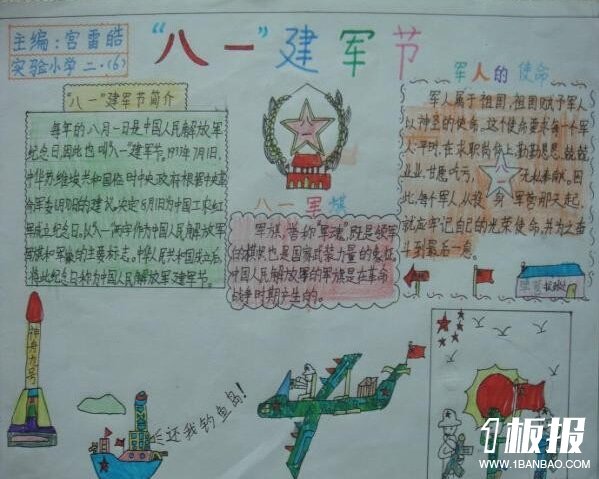 主编:宫雷皓
实验小学 二.(6)
"八一"建军节
"八一"建军节简介
每年的八月一日是中国人民解放军
纪念日,因此也叫八一"建军节。1933年7月1日,
中华苏维埃共和国临时中央政府根据中央革
命军委6月30日的建议,决定8月1日为中国工农红
军成立纪念日。以"八一"两字作为中国人民解放军
军旗和军徽的主要标志。中华人民共和国成立后,
将此纪念日称为中国人民解放军建军节。
八一军旗
军旗,誉称"军魂",既是领军
的模供也是国家武装力量的象征
中国人民解放军的军旗是在革命
战争时期产生的。
军人的使命
军人属于祖国,祖国赋予军人
以神圣的使命。这个使命要求每一个军
人,平时,在求职岗位上勤勤恳恳,兢兢
业业,甘愿吃亏,无私奉献。因
此,每个军人从投身军营那天起,
就应牢记自己的光荣使命,并为之奋
斗到最后一息。
神舟九号
还我钓鱼岛!
1板报
WWW.1BANBAO.COM